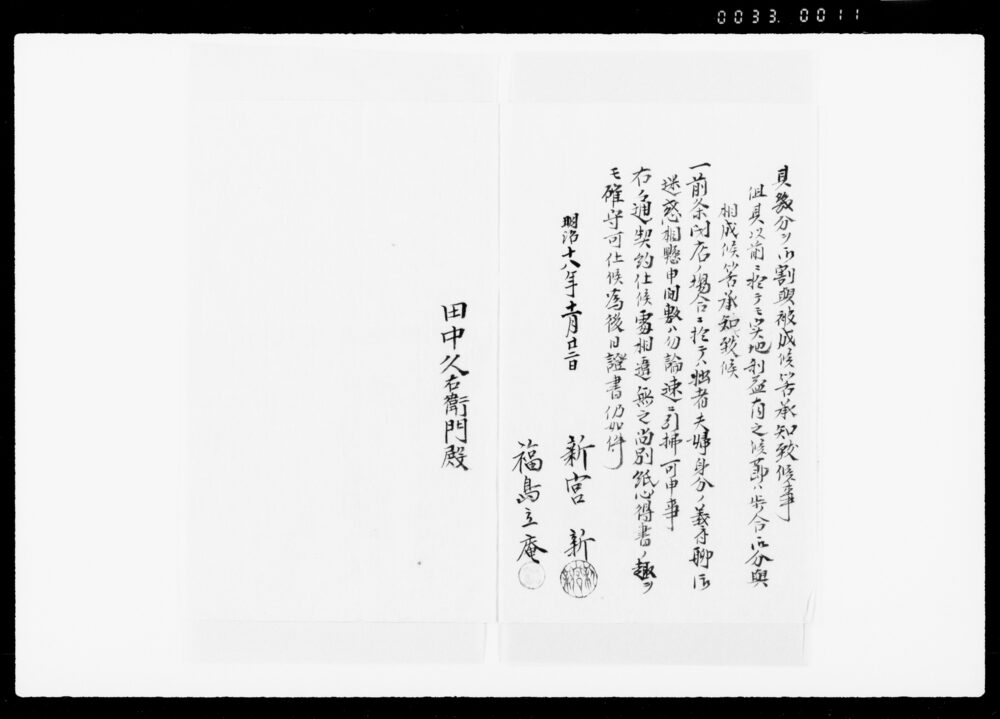 0033. 0011
其数分ヲ御割與被成候筈承知致候事
但其以前ニ於テモ実地利益有之候節ハ歩合御分與
相成候筈承知致候
一前条閉店ノ場合ニ於テハ拙者夫婦身分ノ義ニ付聊御
迷惑相懸申間敷ハ勿論速ニ引拂可申事
右ノ通契約仕候處相違無之尚別紙心得書ノ趣ヲ
モ確守可仕候為後日證書仍如件
明治十八年十一月廿二日
新宮 新
福島立庵
田中久右衛門殿